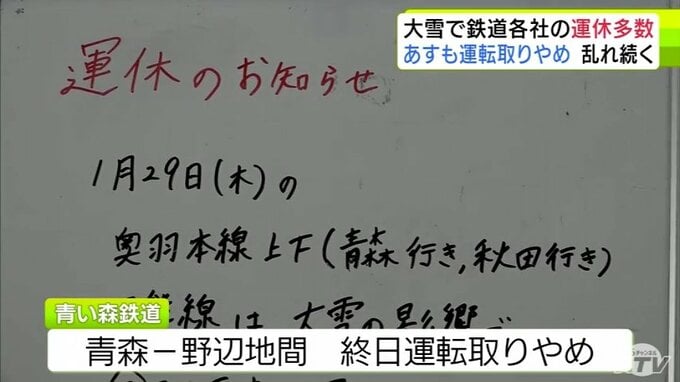 大雪で鉄道各社の運休多数
あすも運転取りやめ 乱れ続く
運休のお知らせ
1月29日(木)の
奥羽本線上下(青森行き,秋田行き)
線は大雪の影響で
青い森鉄道
青森－野辺地間 終日運転取りやめ
チャンネル
ATV